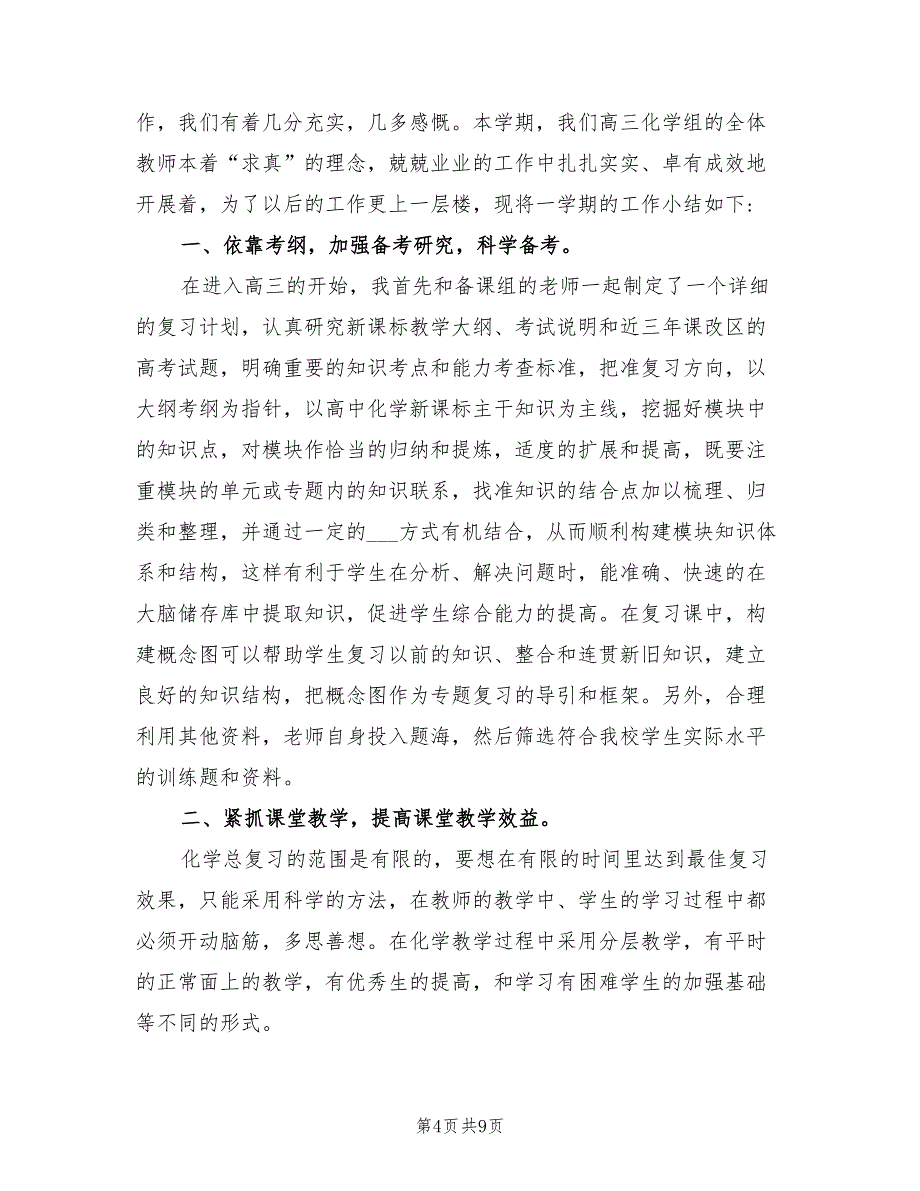 作，我们有着几分充实，几多感慨。本学期，我们高三化学组的全体
教师本着“求真”的理念，兢兢业业的工作中扎扎实实、卓有成效地
开展着，为了以后的工作更上一层楼，现将一学期的工作小结如下：
一、依靠考纲，加强备考研究，科学备考。
在进入高三的开始，我首先和备课组的老师一起制定了一个详细
的复习计划，认真研究新课标教学大纲、考试说明和近三年课改区的
高考试题，明确重要的知识考点和能力考查标准，把准复习方向，以
大纲考纲为指针，以高中化学新课标主干知识为主线，挖掘好模块中
的知识点，对模块作恰当的归纳和提炼，适度的扩展和提高，既要注
重模块的单元或专题内的知识联系，找准知识的结合点加以梳理、归
类和整理，并通过一定的___方式有机结合，从而顺利构建模块知识体
系和结构，这样有利于学生在分析、解决问题时，能准确、快速的在
大脑储存库中提取知识，促进学生综合能力的提高。在复习课中，构
建概念图可以帮助学生复习以前的知识、整合和连贯新旧知识，建立
良好的知识结构，把概念图作为专题复习的导引和框架。另外，合理
利用其他资料，老师自身投入题海，然后筛选符合我校学生实际水平
的训练题和资料。
二、紧抓课堂教学，提高课堂教学效益。
化学总复习的范围是有限的，要想在有限的时间里达到最佳复习
效果，只能采用科学的方法，在教师的教学中、学生的学习过程中都
必须开动脑筋，多思善想。在化学教学过程中采用分层教学，有平时
的正常面上的教学，有优秀生的提高，和学习有困难学生的加强基础
等不同的形式。
第4页 共9页